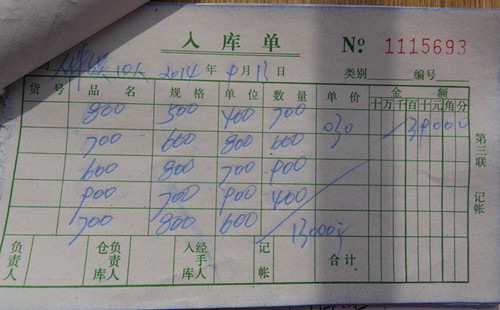 入库单 № 1115693
2014 年 9月13日 类别 编号
货号 品名 规格 单位 数量 单价 金额
十万千百十元角分
800 500 400 700
700 600 800 600
600 800 700 900
900 700 900 400
700 800 600 13000
负责人 仓库负责人 入库经手人 记帐 合计
第三联 记帐